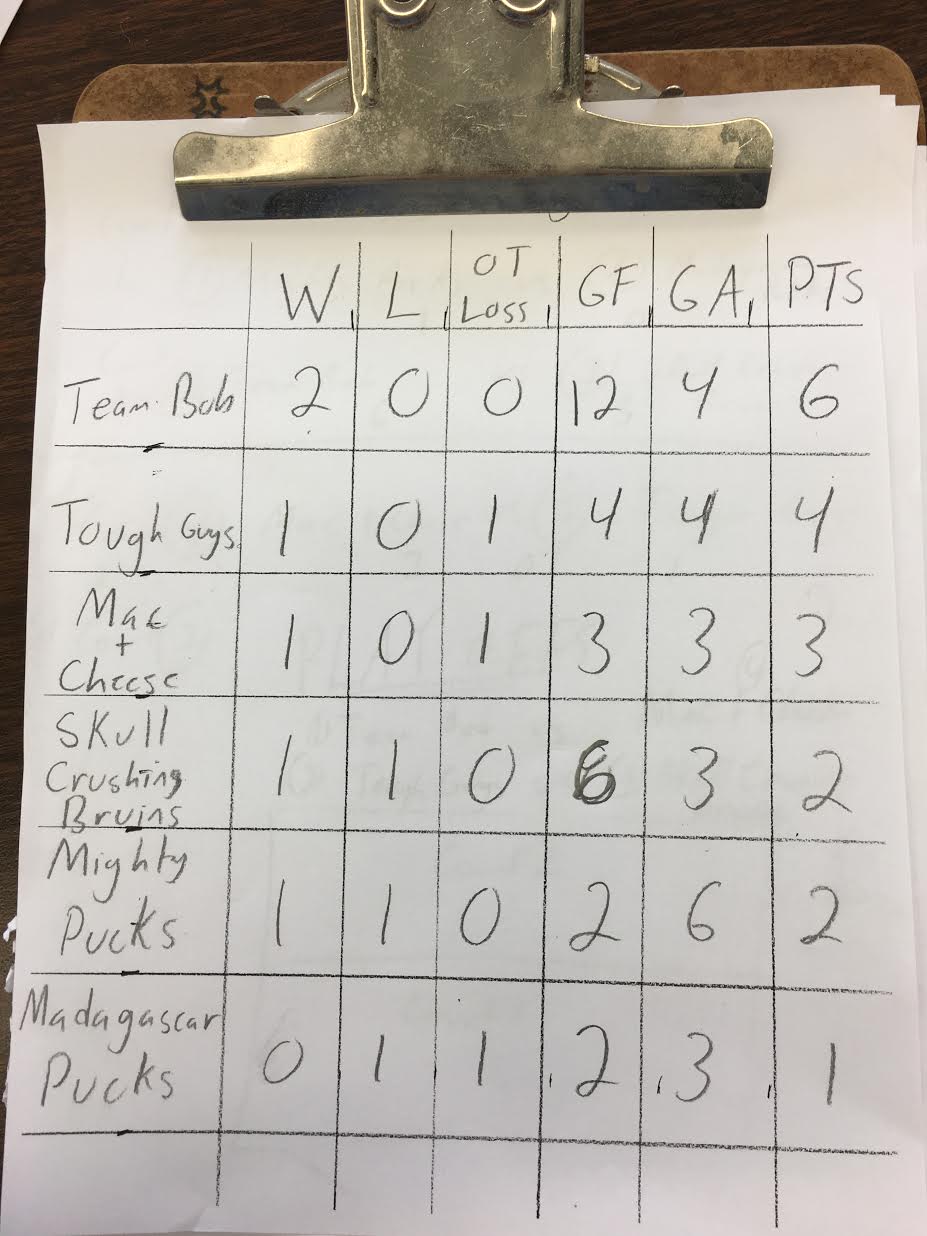 W L OT Loss GF GA PTS
Team Bob 2 0 0 12 4 6
Tough Guys 1 0 1 4 4 4
Mac + Cheese 1 0 1 3 3 3
Skull Crushing Bruins 1 1 0 6 3 2
Mighty Pucks 1 1 0 2 6 2
Madagascar Pucks 0 1 1 2 3 1